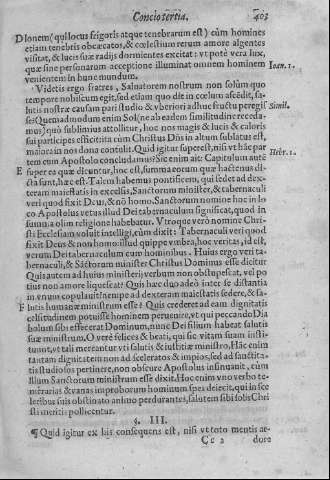 Concio tertia. 403
D Ionem (qui locus frigoris atque tenebrarum est) cùm homines
etiam tenebris obcæcatos, & cœlestium rerum amore algentes
visitat, & luci suæ radijs dormientes excitat: vt potè vera lux,
quæ sine personarum acceptione illuminat omnem hominem Ioan. 1.
venientem in hunc mundum.
Videtis ergo fratres, Saluatorem nostrum non solùm quo
tempore nobiscum egit, sed etiam quo die in cœlum ascẽdit, sa-
lutis nostræ causam pari studio & vberiori adhuc fructu peregis Simil.
se: Quemadmodum enim Sol (ne ab eadem similitudine receda-
mus) quò sublimius attollitur, hoc nos magis & lucis & calori
sui participes efficit: ita cum Christus Dñs in altum sublatus est,
maiora in nos dona contulit. Quid igitur superest, nisi vt hæc par
tem cum Apostolo concludamus? Sic enim ait: Capitulum autẽ Hebr. 1.
E super ea quæ dicuntur, hoc est, summa eorum quæ hactenus di-
cta sunt, hæc est. Talem habemus pontificem, qui sedet ad dex-
teram maiestatis in excelsis, Sanctorum minister, & tabernaculi
veri quod fixit Deus, & nõ homo. Sanctorum nomine hoc in lo
co Apostolus vetus illud Dei tabernaculum significat, quod in
summa olim religione habebatur. Vtroque verò nomine Chri-
sti Ecclesiam voluit intelligi, cùm dixit: Tabernaculi veri quod
fixit Deus & non homo. illud quippe vmbra, hoc veritas, id est,
verum Dei tabernaculum cum hominibus. Huius ergo veri ta-
bernaculi, & Sãctorum minister Christus Dominus esse dicitur
Quis autem ad huius ministerij verbum non obstupescat, vel po
tius non amore liquescat? Quis hæc duo adeò inter se distantia
in vnum copularit? nempe ad dexteram maiestatis sedere, & sa-
F lutis humanæ ministrum esse? Quis crederet ad eam dignitatis
celsitudinem potuisse hominem peruenire, vt qui peccando Dia
bolum sibi effecerat Dominum, nunc Dei filium habeat salutis
suæ ministrum. O verè felices & beati, qui sic vitam suam insti-
tuunt, vt tali mereantur vti salutis & iustitiæ ministro. Hãc enim
tantam dignitatem non ad sceleratos & impios, sed ad sanctita-
tis studiosos pertinere, non obscurè Apostolus insinuauit, cùm
illum Sanctorum ministrum esse dixit. Hoc enim vno verbo te-
merarias & vanas improborum hominum spes deiecit, qui in sce
leribus suis obstinato animo perdurantes, salutem sibi solis Chri
sti meritis pollicentur.
§. III.
¶ Quid igitur ex his consequens est, nisi vt toto mentis ar-
Cc 2 dore